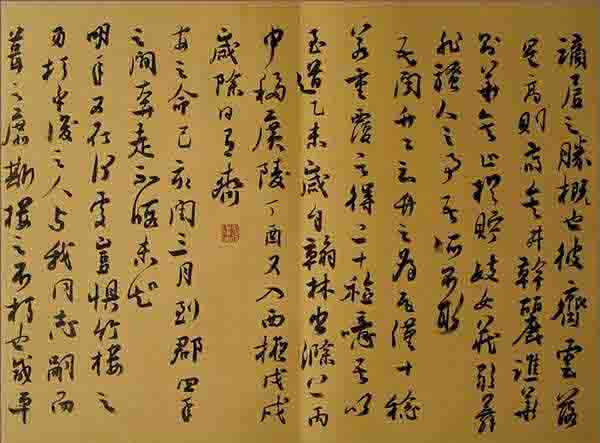 謫居之勝概也彼齊雲落
星高則高矣井幹麗譙華
則華矣止於貯妓女藏歌舞
非騷人之事吾所不取
吾聞竹工云竹之為瓦僅十稔
若重覆之得二十稔噫吾以
至道乙未歲自翰林出滁上丙
申移廣陵丁酉又入西掖戊戌
歲除日有齊
安之命己亥閏三月到郡四年
之間奔走不暇未知
明年又在何處豈懼竹樓之
易朽乎後之人與我同志嗣而
葺之庶斯樓之不朽也咸平